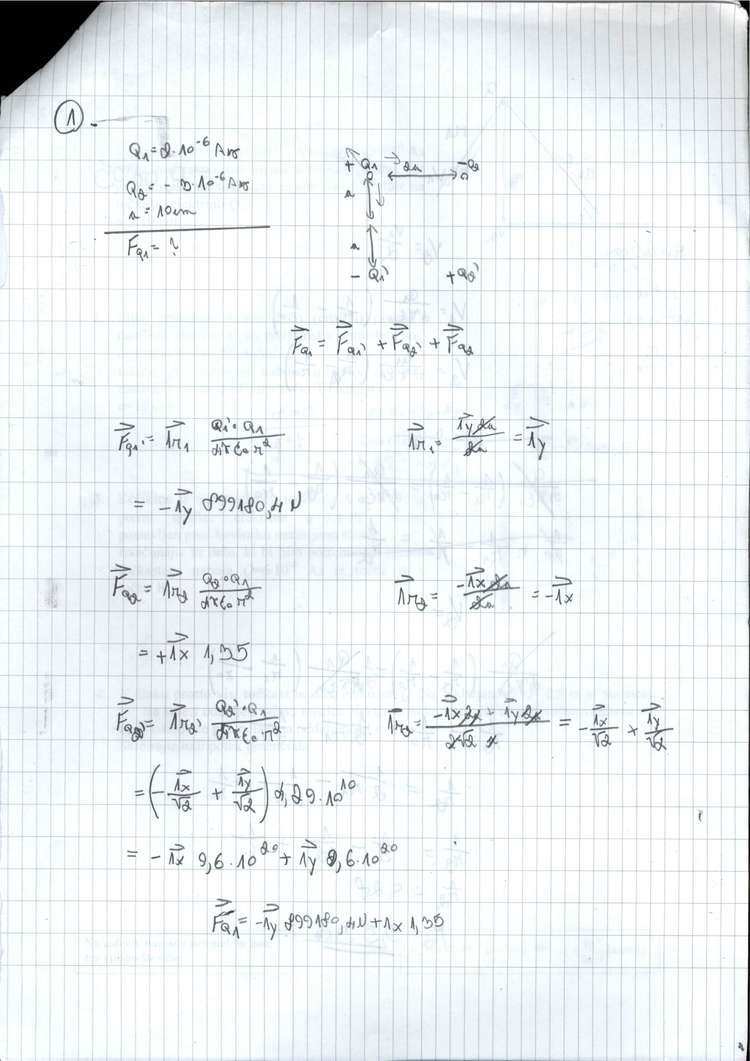 1.
Q₁ = 2·10⁻⁶ As
Q₂ = -3·10⁻⁶ As
a = 10cm
F_Q₁ = ?
+ Q₁ 2a -Q₂
a
a
- Q₁' +Q₂'
F⃗_Q₁ = F⃗_Q₁' + F⃗_Q₂' + F⃗_Q₂
F⃗_Q₁' = 1⃗r₁ Q₁'·Q₁ / 4πε₀r² 1⃗r₁ = 1⃗y 2a / 2a = 1⃗y
= -1⃗y 899180,4 N
F⃗_Q₂ = 1⃗r₂ Q₂·Q₁ / 4πε₀r² 1⃗r₂ = -1⃗x 2a / 2a = -1⃗x
= +1⃗x 1,35
F⃗_Q₂' = 1⃗r₂' Q₂'·Q₁ / 4πε₀r² 1⃗r₂ = -1⃗x 2a + 1⃗y 2a / 2√2 a = -1⃗x/√2 + 1⃗y/√2
= (-1⃗x/√2 + 1⃗y/√2) 4,29·10¹⁰
= -1⃗x 9,6·10²⁰ + 1⃗y 9,6·10²⁰
F⃗_Q₁ = -1⃗y 899180,4N + 1x 1,35